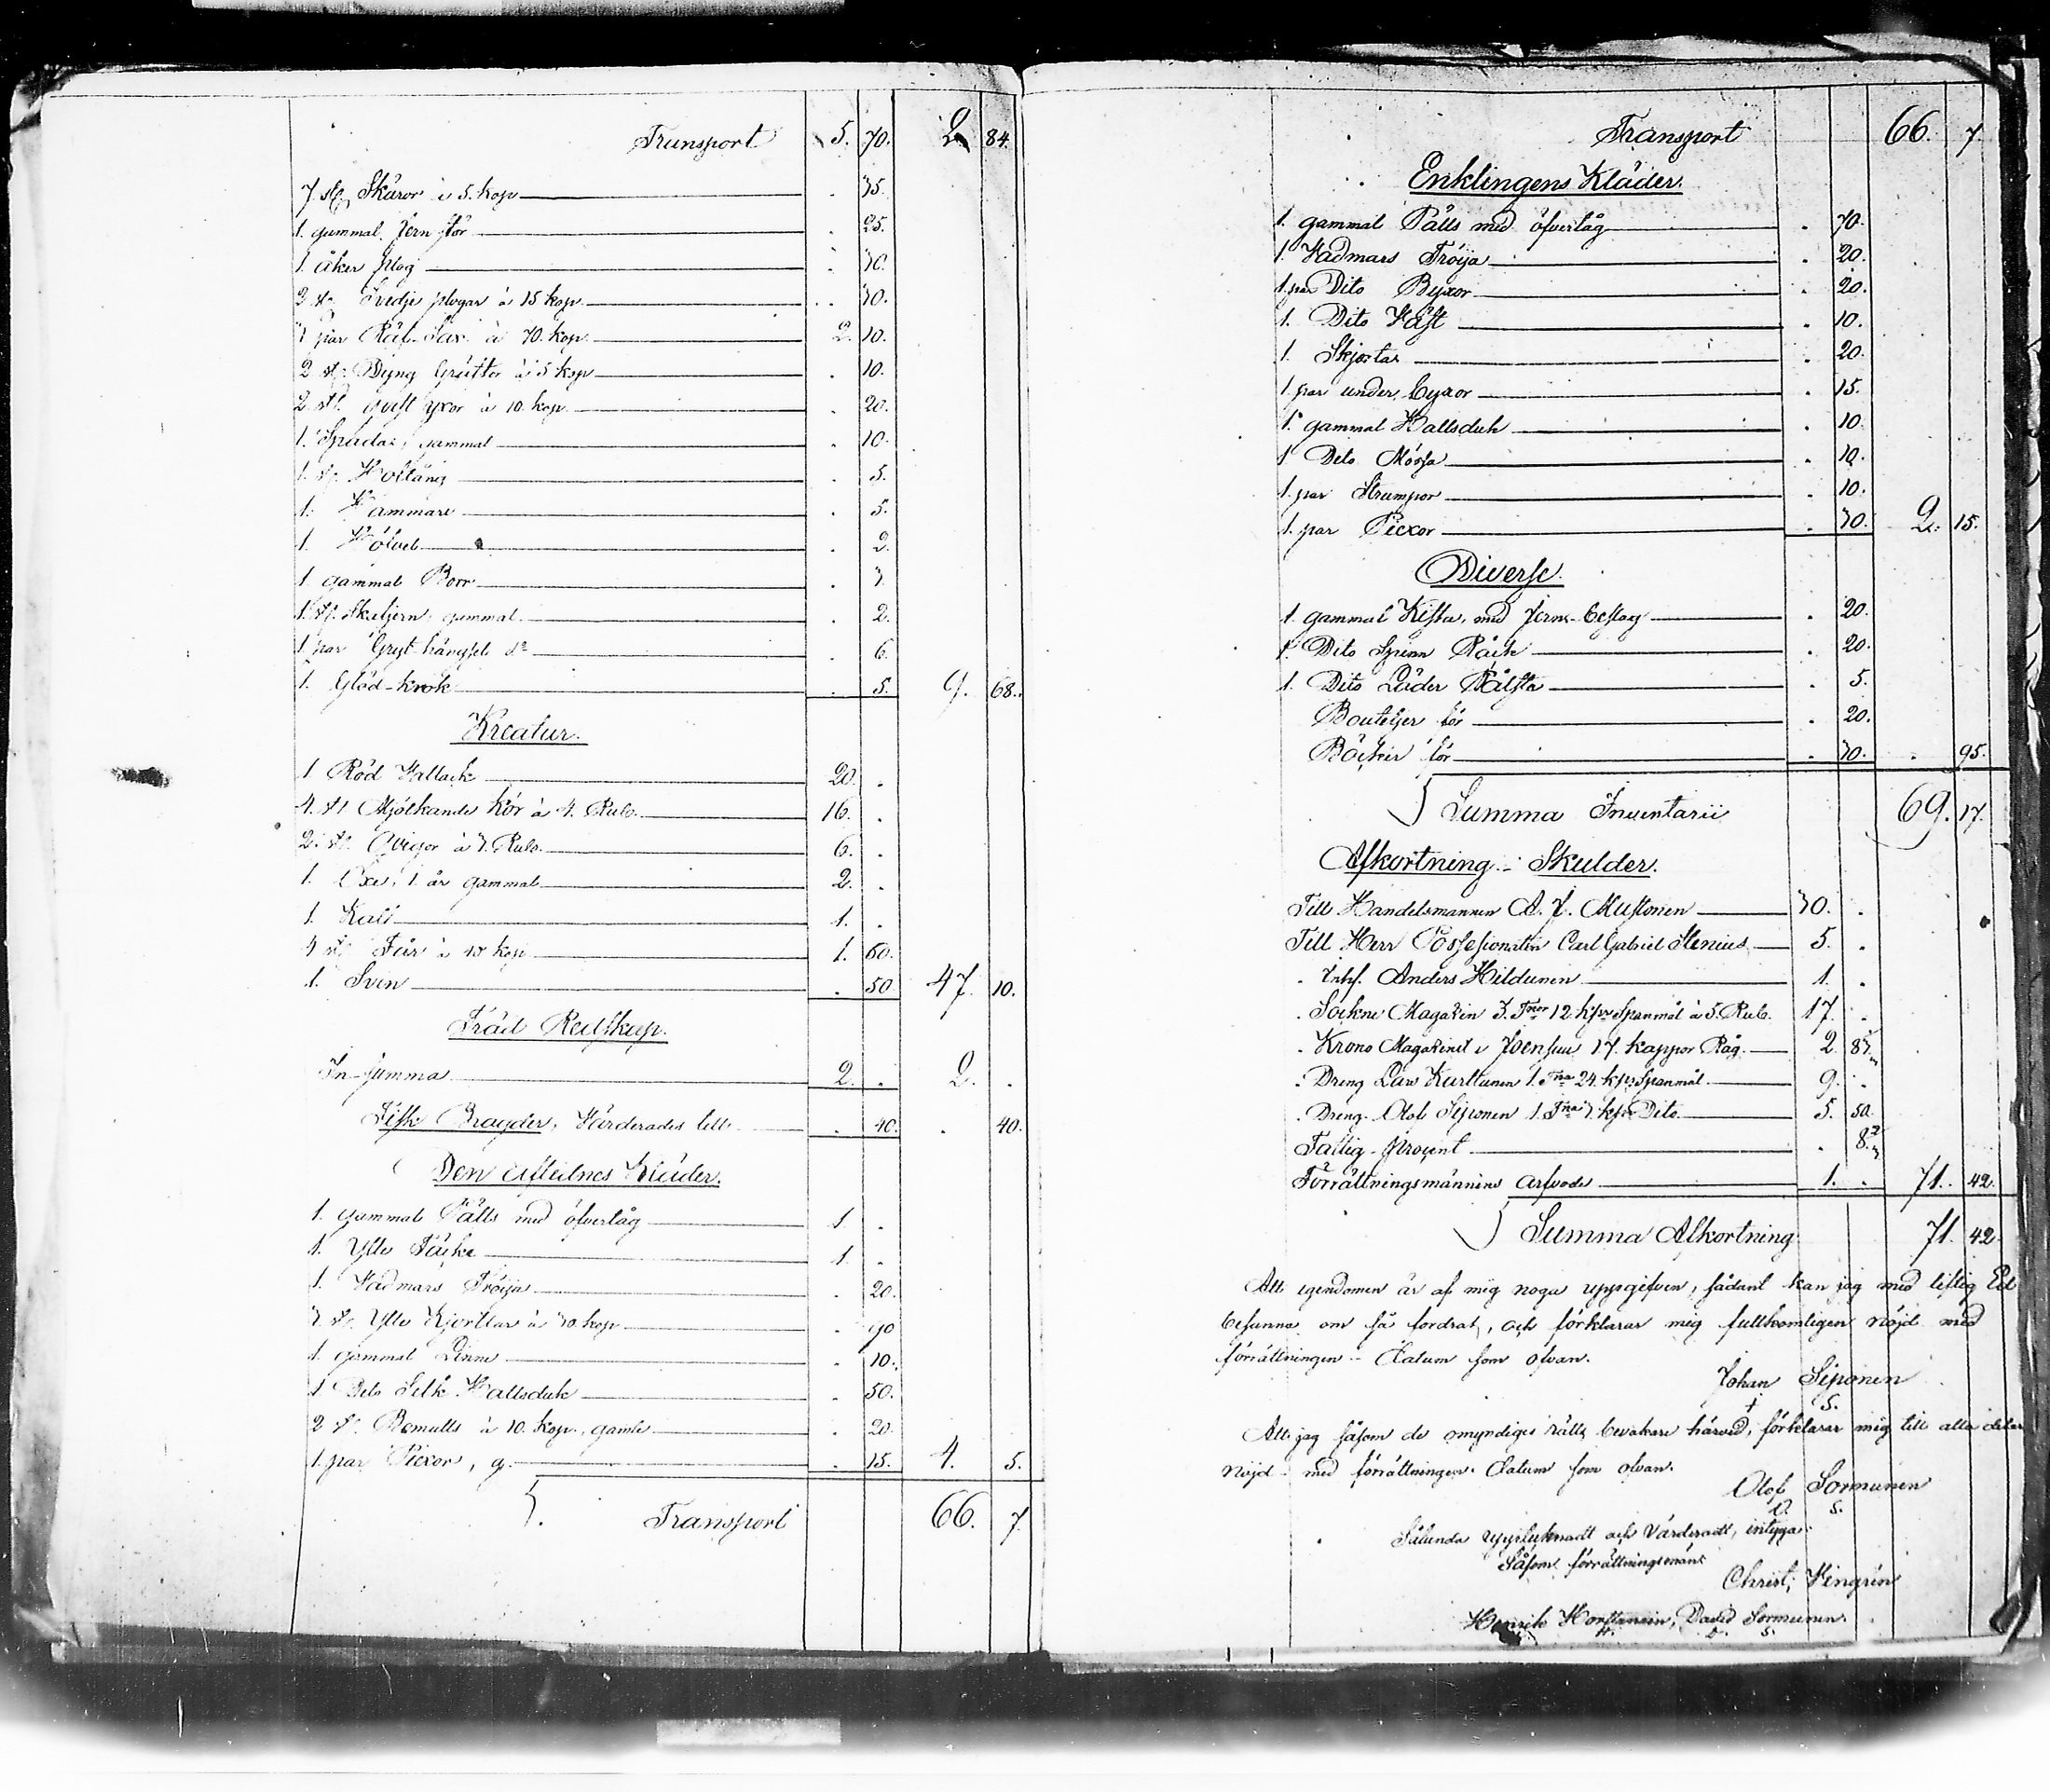 Transport 5. 70. 2 84.
7 st. Skäror à 5. kop . 35.
1. gammal Jern stör . 25.
1. åker plog . 30.
2 st. Svedje plogar à 15 kop . . 30.
3 par Räf-Sax à 70. kop. 2. 10.
2 st. Dyng Grufter à 5 kop . 10.
2 st. qvist yxor à 10. kop . 20.
1. Spada, gammal . 10.
1. st. Hoftång . 5.
1. Hammare . 5.
1. . 2.
1 gammal Borr . 3.
1. st. Skaljern gammal . 2.
1 par Gryt-hängsel do . 6.
1. Glöd-krok . 5. 9. 68.
Kreatur.
1 Röd Vallack 20. .
4. st Mjölkande kor à 4. Rub. 16. .
2. st. Qvigor à 3. Rub. 6. .
1. Oxe, 1. år gammal 2. .
1. Kalf 1. .
4 st. Får à 40 kop 1. 60.
1. Svin . 50 47. 10.
Träd Redskap.
In summa 2. . 2. .
Fisk Bragder, Värderades till . 40. . 40.
Den aflednes Kläder.
1. gammal Pälts med öfvertåg 1 .
1. Ylle 1. .
1. Vadmars Tröija . 20.
3 st. Ylle Kjorttlar à 30 kop . 90
1 gammal Linne . 10.
1 Dito Silk Hallsduk . 50.
2 st. Bomulls à 10. kop., gamla . 20.
1 par Piexor, g. . 15. 4. 5.
Transport 66. 7.
Transport 66. 7.
Enklingens Kläder.
1. gammal Pälts med öfvertåg . 70.
1. Vadmars Tröija . 20.
1. par Dito Byxor . 20.
1. Dito Väst . 10.
1. Skjorta . 20.
1 par under byxor . 15.
1. gammal Hallsduk . 10.
1 Dito Mössa . 10.
1. par Strumpor . 10.
1. par Piexor . 30. 2. 15.
Diverse.
1. gammal Kista, med Jern-beslag . 20.
1. Dito Spinn Råck . 20.
1. Dito Läder . 5.
Bouteljer för . 20.
Böcker för . 30. . 95.
Summa Inventarii 69. 17.
Afkortning - Skulder.
Till Handelsmannen A. J. Mustonen 30. .
Till Herr Possessionaten Carl Gabriel Stenius 5. .
. Inhs. Anders Hildunen 1. .
. Sockne Magazin 3. Tnor 12 kpr Spanmål à 5. Rub. 17. .
. Krono Magazinet i Joensuu 17. kappor Råg. 2. 83
. Dreng Lars Kurttunen 1. Tna 24. kpr Spanmål 9. .
. Dreng Olof Siponen 1. Tna 3 kpr Dito 5. 50.
Fattig-procent . 8.
Förrättningsmännens arfvode 1. . 71. 42.
Summa Afkortning 71. 42.
Att egendomen är af mig noga uppgifven, sådant kan jag med liflig Ed
besanna om så fordras, och förklarar mig fullkomligen nöjd med
förrättningen - Datum som ofvan.
Johan Siponen
+ S.
Att jag såsom de omyndiges rätts bevakare härvid, förklarar mig till alla delar
nöjd med förrättningen. Datum som ofvan.
Olof Sormunen
O. S.
Sålunda upptecknadt och Värderadt, intyga.
Såsom förrättningsmän
Christ. Vengrén
Henrik Horttanain, David Sormunen.
H. D. S.